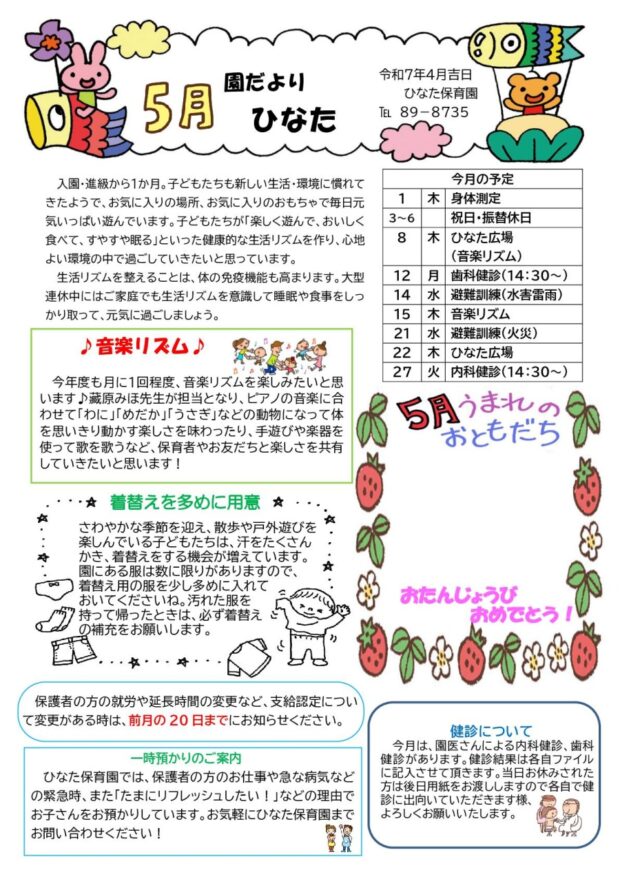 5月
園だより
ひなた
令和7年4月吉日
ひなた保育園
℡ 89－8735
入園・進級から1か月。子どもたちも新しい生活・環境に慣れて
きたようで、お気に入りの場所、お気に入りのおもちゃで毎日元
気いっぱい遊んでいます。子どもたちが「楽しく遊んで、おいしく
食べて、すやすや眠る」といった健康的な生活リズムを作り、心地
よい環境の中で過ごしていきたいと思っています。
生活リズムを整えることは、体の免疫機能も高まります。大型
連休中にはご家庭でも生活リズムを意識して睡眠や食事をしっ
かり取って、元気に過ごしましょう。
今月の予定
1 木 身体測定
3～6 祝日・振替休日
8 木 ひなた広場
（音楽リズム）
12 月 歯科健診（14：30～）
14 水 避難訓練（水害雷雨）
15 木 音楽リズム
21 水 避難訓練（火災）
22 木 ひなた広場
27 火 内科健診（14：30～）
♪音楽リズム♪
今年度も月に1回程度、音楽リズムを楽しみたいと思
います♪藏原みほ先生が担当となり、ピアノの音楽に合
わせて「わに」「めだか」「うさぎ」などの動物になって体
を思いきり動かす楽しさを味わったり、手遊びや楽器を
使って歌を歌うなど、保育者やお友だちと楽しさを共有
していきたいと思います！
5月うまれの
おともだち
おたんじょうび
おめでとう！
着替えを多めに用意
さわやかな季節を迎え、散歩や戸外遊びを
楽しんでいる子どもたちは、汗をたくさん
かき、着替えをする機会が増えています。
園にある服は数に限りがありますので、
着替え用の服を少し多めに入れて
おいてくださいね。汚れた服を
持って帰ったときは、必ず着替え
の補充をお願いします。
保護者の方の就労や延長時間の変更など、支給認定につい
て変更がある時は、前月の20日までにお知らせください。
一時預かりのご案内
ひなた保育園では、保護者の方のお仕事や急な病気など
の緊急時、また「たまにリフレッシュしたい！」などの理由で
お子さんをお預かりしています。お気軽にひなた保育園まで
お問い合わせください！
健診について
今月は、園医さんによる内科健診、歯科
健診があります。健診結果は各自ファイル
に記入させて頂きます。当日お休みされた
方は後日用紙をお渡ししますので各自で健
診に出向いていただきます様、
よろしくお願いいたします。